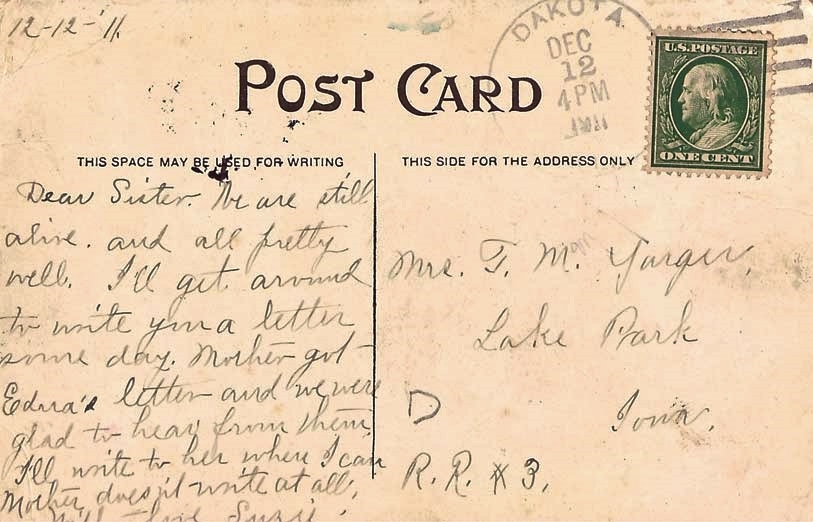 12-12-'11.
DAKOTA
DEC
12
4 PM
1911
U.S. POSTAGE
ONE CENT
POST CARD
THIS SPACE MAY BE USED FOR WRITING
THIS SIDE FOR THE ADDRESS ONLY
Dear Sister. We are still
alive. and all pretty
well. I'll get around
to write you a letter
some day. Mother got
Edna's letter and we were
glad to hear from them
I'll write to her when I can
Mother doesn't write at all.
Will Love Susie.
Mrs. T. M. Yarger,
Lake Park
Iowa.
D
R. R. # 3.